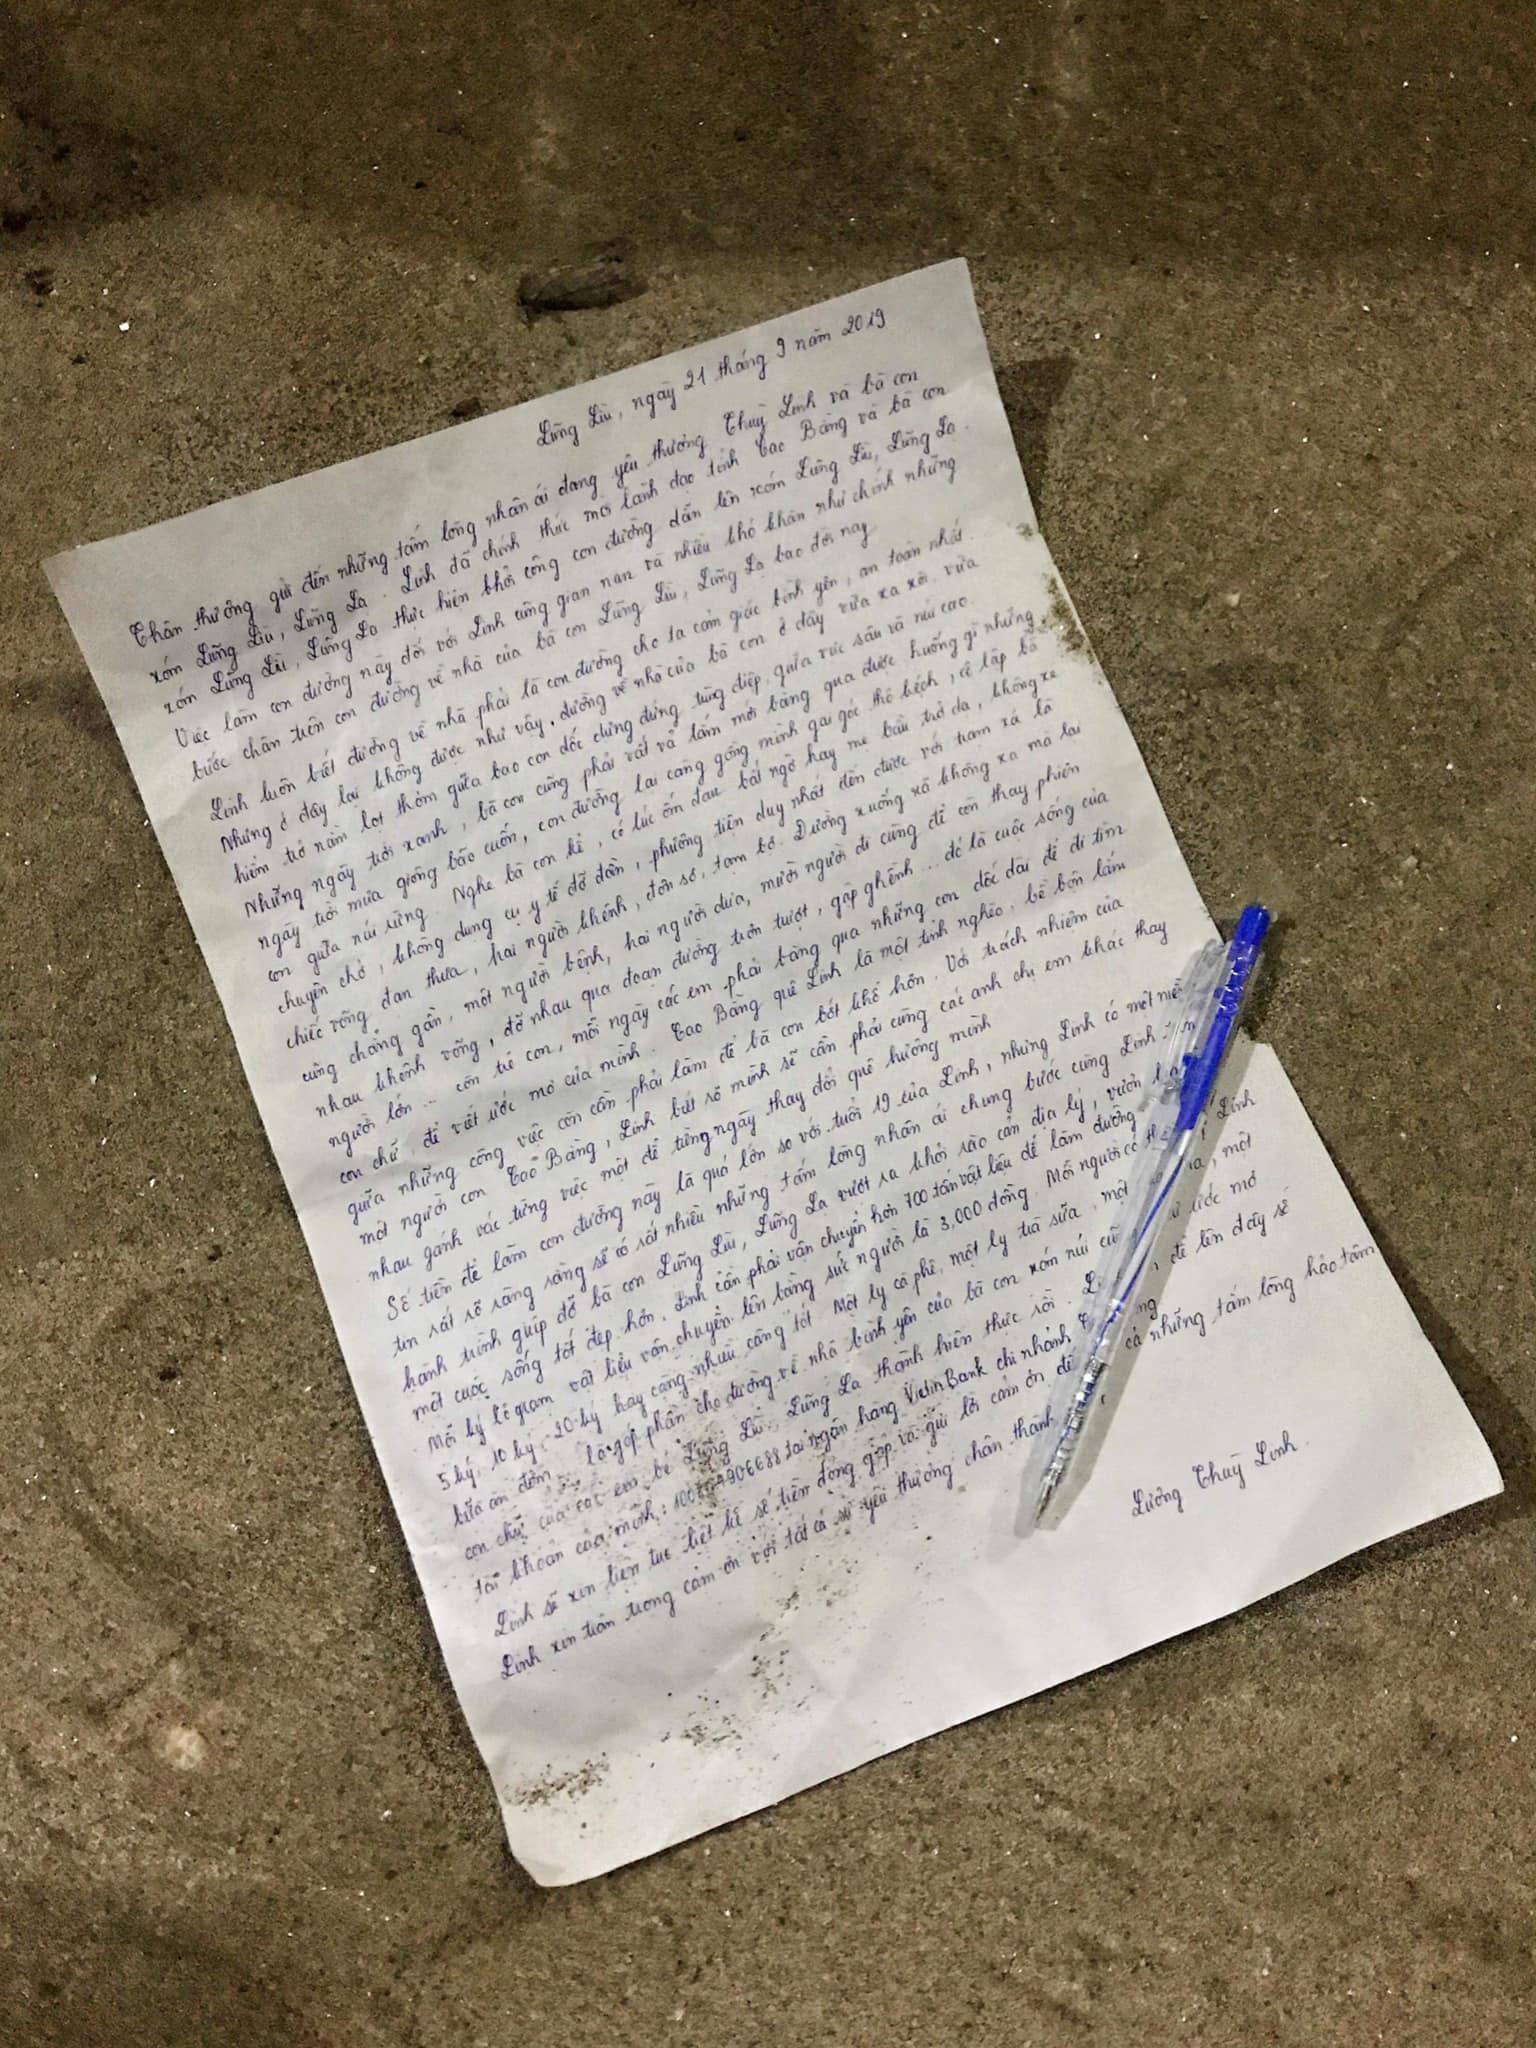 Lũng Lìu, ngày 21 tháng 9 năm 2019
Thân thương gửi đến những tấm lòng nhân ái đang yêu thương Thuỳ Linh và bà con
xóm Lũng Lìu, Lũng La. Linh đã chính thức mời lãnh đạo tỉnh Cao Bằng và bà con
xóm Lũng Lìu, Lũng La thực hiện khởi công con đường dẫn lên xóm Lũng Lìu, Lũng La.
Việc làm con đường này đối với Linh cũng gian nan và nhiều khó khăn như chính những
bước chân trên con đường về nhà của bà con Lũng Lìu, Lũng La bao đời nay
Linh luôn biết đường về nhà phải là con đường cho ta cảm giác bình yên, an toàn nhất.
Nhưng ở đây lại không được như vậy, đường về nhà của bà con ở đây vừa xa xôi vừa
hiểm trở nằm lọt thỏm giữa bao con dốc dựng đứng trùng điệp, giữa vực sâu và núi cao.
Những ngày trời xanh, bà con cũng phải vất vả lắm mới băng qua được huống gì những
ngày trời mưa giông bão cuốn, con đường lại càng gồng mình gai góc thô kệch, cô lập bà
con giữa núi rừng. Nghe bà con kể, có lúc ốm đau bất ngờ hay mẹ bầu trở dạ, không xe
chuyên chở, không dụng cụ y tế đỡ đần, phương tiện duy nhất đến được với trạm xá là
chiếc võng đan thưa, hai người khênh, đơn sơ, tạm bợ. Đường xuống xã không xa mà lại
cũng chẳng gần, một người bệnh, hai người đưa, mười người đi cùng để còn thay phiên
nhau khênh võng, đỡ nhau qua đoạn đường trơn trượt, gập ghềnh... đó là cuộc sống của
người lớn... còn trẻ con, mỗi ngày các em phải băng qua những con dốc dài để đi tìm
con chữ, để viết ước mơ của mình. Cao Bằng quê Linh là một tỉnh nghèo, bề bộn lắm
giữa những công việc còn cần phải làm để bà con bớt khổ hơn. Với trách nhiệm của
một người con Cao Bằng, Linh biết rõ mình sẽ cần phải cùng các anh chị em khác thay
nhau gánh vác từng việc một để từng ngày thay đổi quê hương mình
Số tiền để làm con đường này là quá lớn so với tuổi 19 của Linh, nhưng Linh có một niềm
tin rất rõ ràng rằng sẽ có rất nhiều những tấm lòng nhân ái chung bước cùng Linh
hành trình giúp đỡ bà con Lũng Lìu, Lũng La vượt ra khỏi rào cản địa lý, vươn
một cuộc sống tốt đẹp hơn. Linh cần phải vận chuyển hơn 700 tấn vật liệu để làm đường
Mỗi ký lô gram vật liệu vận chuyển lên bằng sức người là 3,000 đồng. Mỗi người có Linh
5 ký, 10 ký, 20 ký hay càng nhiều càng tốt. Một ly cà phê, một ly trà sữa, một , một
bữa ăn đêm... là góp phần cho đường về nhà bình yên của bà con xóm núi ước mơ
con chữ của các em bé Lũng Lìu, Lũng La thành hiện thực rồi. để lên đây sẽ
tài khoản của mình: tại ngân hàng VietinBank chi nhánh
Linh sẽ xin liên tục liệt kê số tiền đóng góp và gửi lời cảm ơn cả những tấm lòng hảo tâm
Linh xin trân trọng cảm ơn với tất cả sự yêu thương chân thành
Lương Thuỳ Linh